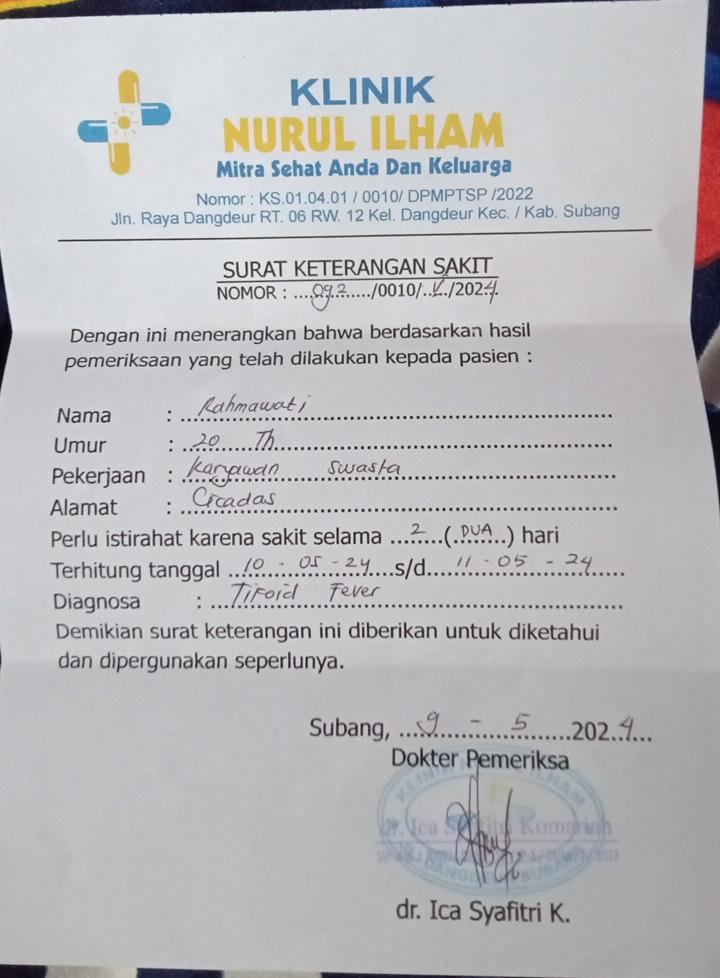 KLINIK
NURUL ILHAM
Mitra Sehat Anda Dan Keluarga
Nomor : KS.01.04.01 / 0010/ DPMPTSP /2022
Jln. Raya Dangdeur RT. 06 RW. 12 Kel. Dangdeur Kec. / Kab. Subang
SURAT KETERANGAN SAKIT
NOMOR : ....092...../0010/..V./2024.
Dengan ini menerangkan bahwa berdasarkan hasil
pemeriksaan yang telah dilakukan kepada pasien :
Nama : Rahmawati
Umur : 20 Th
Pekerjaan : Karyawan Swasta
Alamat : Cicadas
Perlu istirahat karena sakit selama ...2...(.DUA..) hari
Terhitung tanggal ..10 - 05 - 24...s/d....11 - 05 - 24
Diagnosa : Tifoid Fever
Demikian surat keterangan ini diberikan untuk diketahui
dan dipergunakan seperlunya.
Subang, ...9 - 5 ...2024...
Dokter Pemeriksa
KLINIK NURUL ILHAM
dr. Ica Syafitri Komariah
dr. Ica Syafitri K.